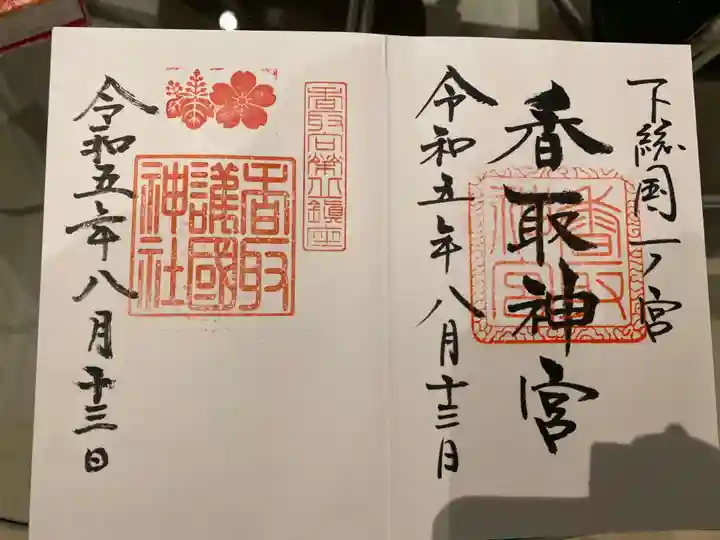 下総国一ノ宮
香取神宮
令和五年八月十三日
香取神宮
香取
護國
神社
令和五年八月十三日